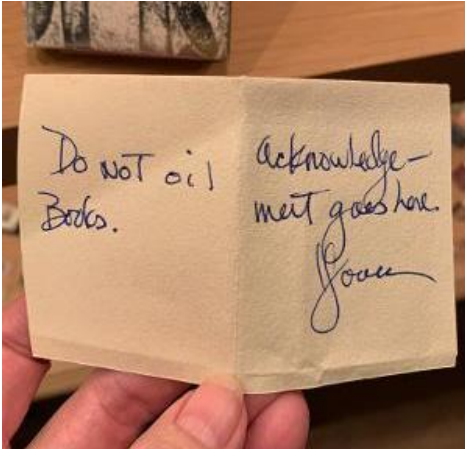 Do NOT oil
Books.
acknowledge-
ment goes here.